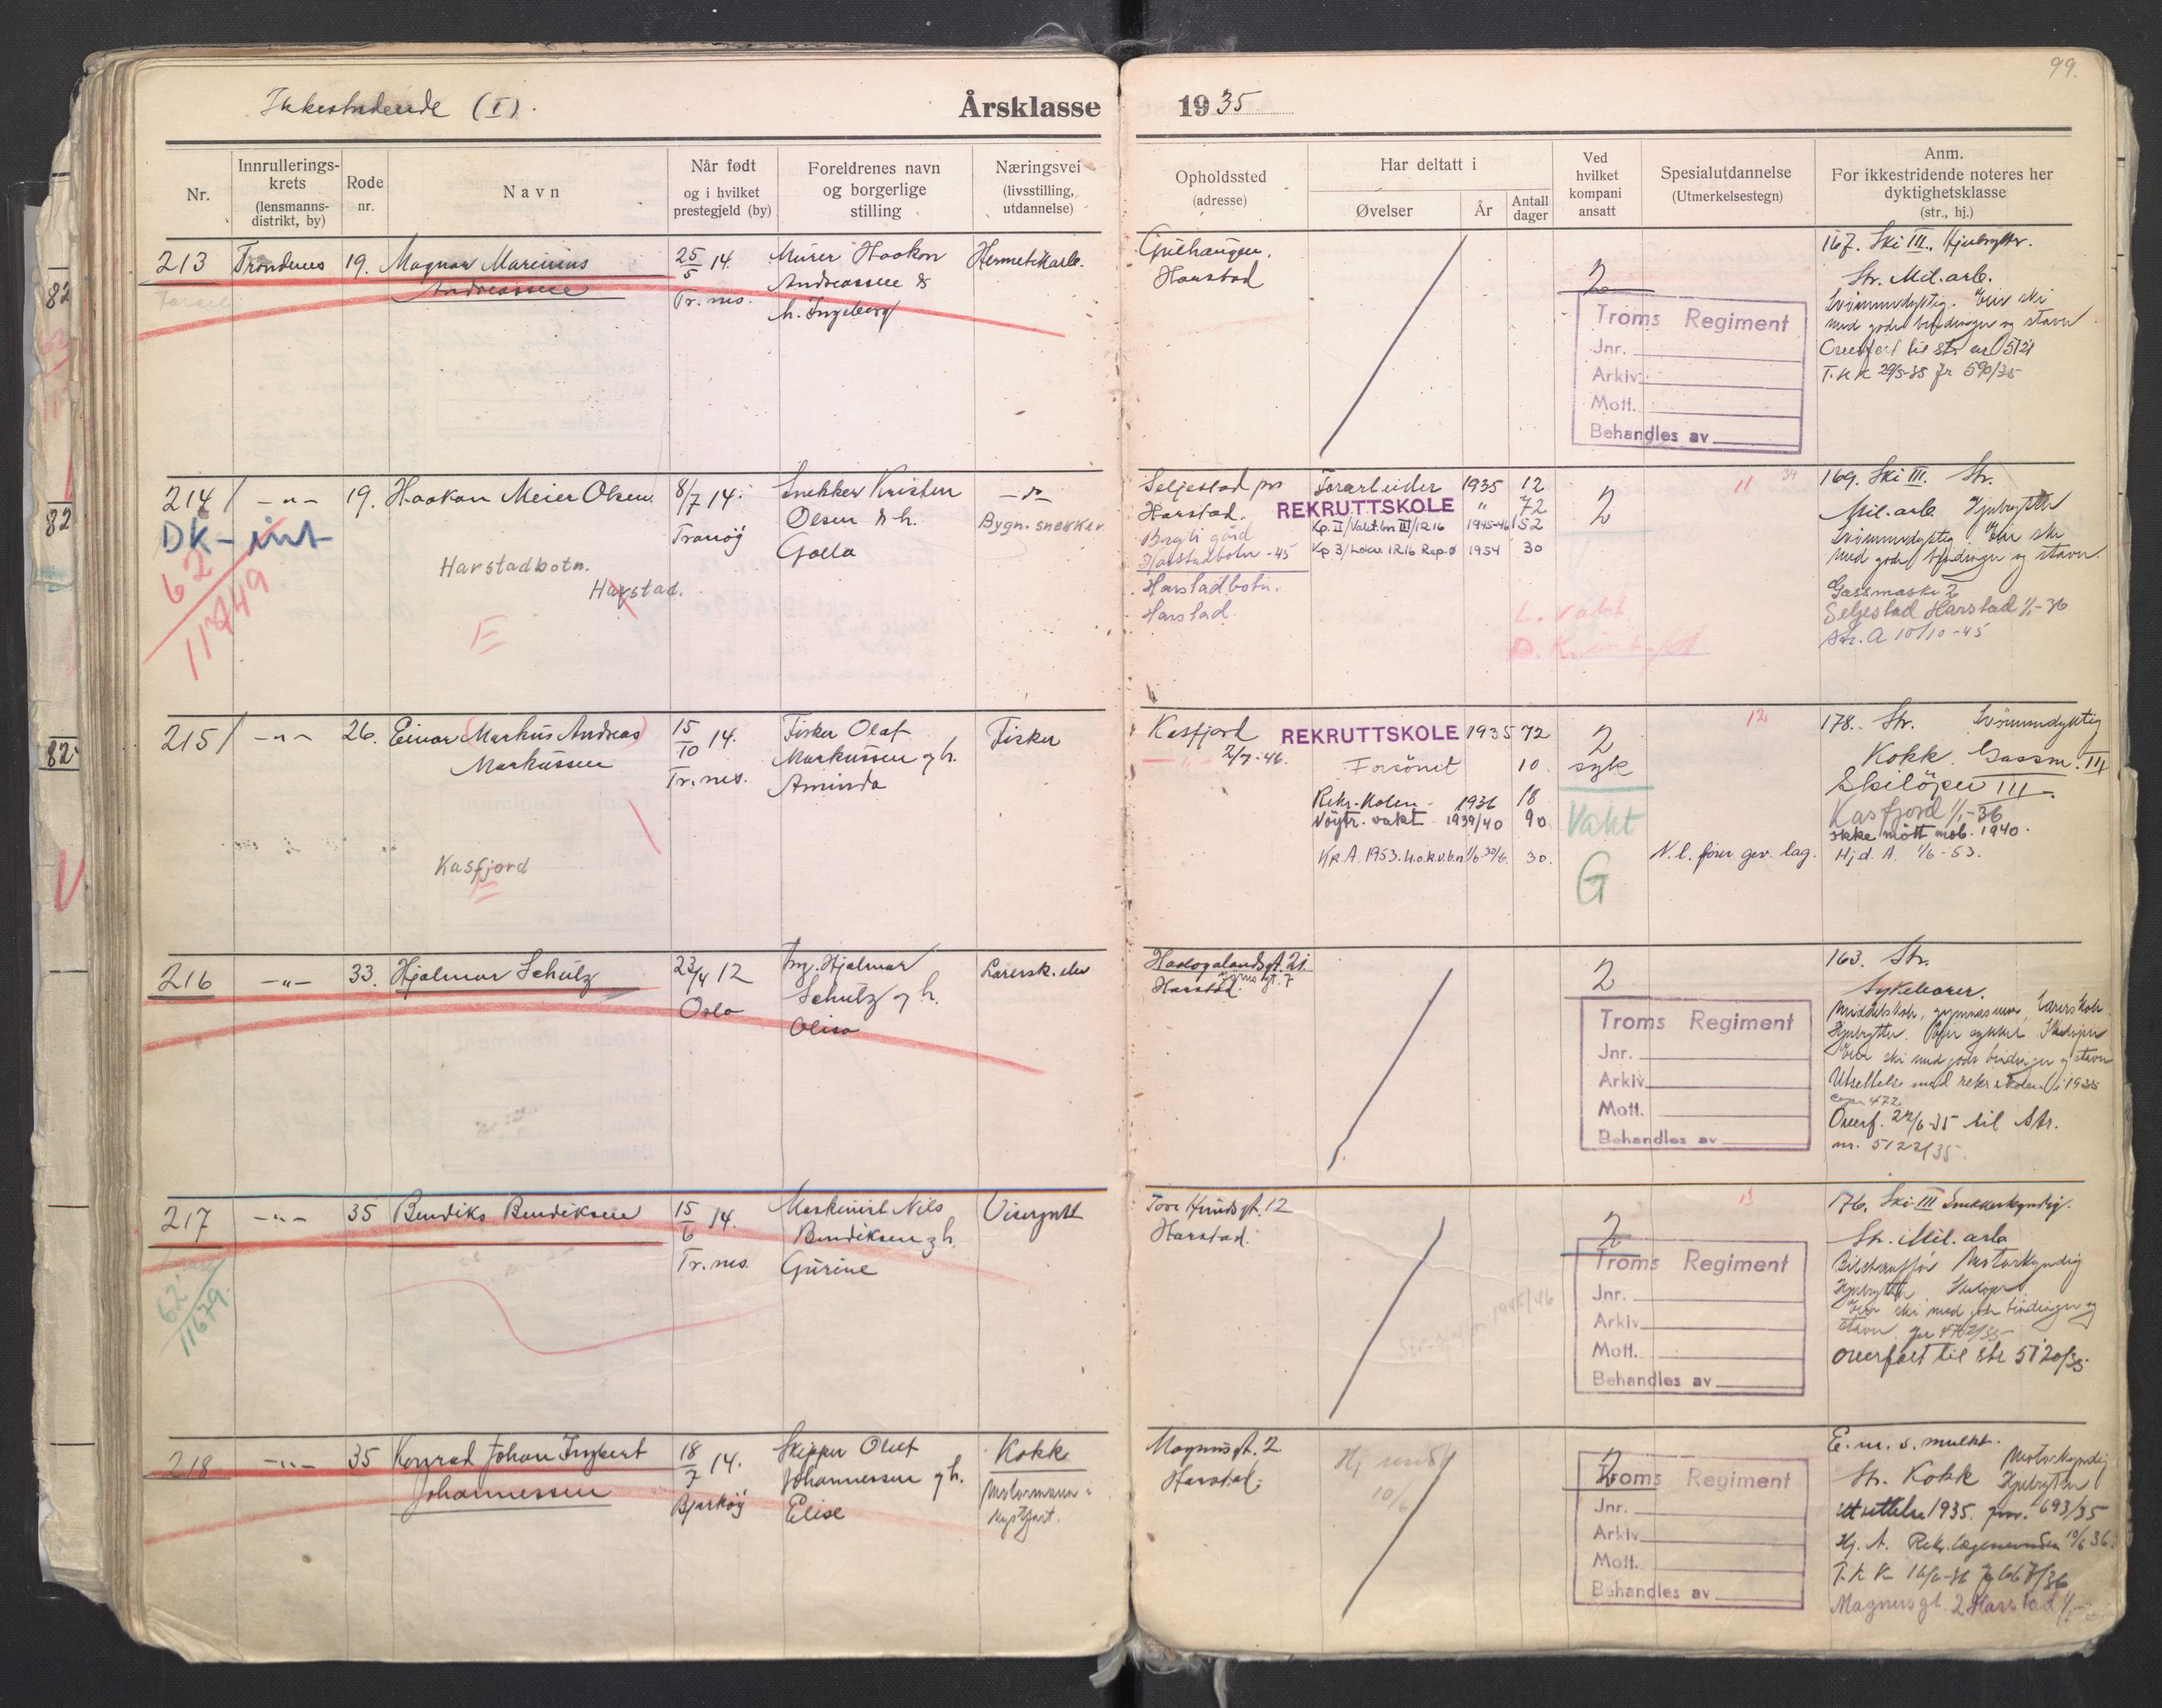 99.
Ikkestridende (I).
Årsklasse 1935
Nr.
Innrullerings-
krets
(lensmanns-
distrikt, by)
Rode
nr.
Navn
Når født
og i hvilket
prestegjeld (by)
Foreldrenes navn
og borgerlige
stilling
Næringsvei
(livsstilling,
utdannelse)
Opholdssted
(adresse)
Har deltatt i
Øvelser
År
Antall
dager
Ved
hvilket
kompani
ansatt
Spesialutdannelse
(Utmerkelsestegn)
Anm.
For ikkestridende noteres her
dyktighetsklasse
(str., hj.)
213 Trondenes 19. Magnar Marinius
Andreassen
25/5 14.
Tr.nes.
Murer Haakon
Andreassen &
h. Ingeborg
Hermetikarb.
Harstad
2
Troms Regiment
Jnr.
Arkiv
Mott.
Behandles av
167. Ski III. Hjulrytter.
Str. Mil. arb.
Svømmedyktig. Eier ski
med gode bindinger og staver
Overført til str nr 5121
T.K.K 29/5-35 jr 590/35
214 / -"- 19. Haakon Meier Olsen.
DK-int
62
11949
Harstadbotn.
Harstad.
E
8/7 14.
Tranöy
Snekker Kristen
Olsen & h.
Golla
-"-
Bygn. snekker
Seljestad pr
Harstad.
Bergli gård
Harstadbotn -45
Harstadbotn.
Harstad.
Forarbeider 1935 12
REKRUTTSKOLE " 72
Kp. II/Vakt.bn III/IR16 1945-46 152
Kp 3/Lokv. IR16 Rep.ö 1954 30
2
L. vakt
11
34
169. Ski III. Str.
Mil. arb Hjulrytter
Svømmedyktig. Eier ski
med gode bindinger og staver.
Gassmaske 2
Seljestad Harstad 1/1-36
Str. A 10/10-45
215 / -"- 26. Einar (Markus Andreas)
Markussen
Kasfjord
E
15/10 14.
Tr.nes.
Fisker Olaf
Markussen og h.
Aminda
Fisker
Kasfjord
-"- 2/7-46.
REKRUTTSKOLE 1935 72
Forsönet 10.
Rekr.skolen - 1936 18
Nöytr. vakt 1939/40 90
Kp.A. 1953. H.o.k.v.b.n 1/6-30/6. 30.
2
syk
Vakt
G
12
N.l. förer gev. lag.
178. Str. Svømmedyktig
Kokk. Gassm. III
Skilöper III.
Kasfjord 1/1-36
ikke mött mob. 1940.
Hjd. A. 1/6-53.
216 -"- 33. Hjalmar Schulz
23/4 12
Oslo
Ing. Hjalmar
Schulz og h.
Olisa
Lærersk. elev
Haalogalandsgt. 21
Harstad.
2
Troms Regiment
Jnr.
Arkiv
Mott.
Behandles av
163. Str.
Sykebærer.
Middelskole, gymnasium, Lærerskole
Hjulrytter. Eier sykkel Skilöper
Eier ski med gode bindinger og staver
Utsettelse med rekrskolen i 1935
Overf. 22/6-35 til Str.
nr. 5122/35.
217 -"- 35 Bendiks Bendiksen
62
11679.
15/6 14.
Tr.nes.
Maskinist Nils
Bendiksen og h.
Gurine
Visergutt
Tore Hundsgt. 12
Harstad.
1945/46
2
Troms Regiment
Jnr.
Arkiv
Mott.
Behandles av
13
176. Ski III Snekkerkyndig.
Str. Mil. arb
Bilchauffør Motorkyndig
Hjulrytter Skilöper
Eier ski med gode bindinger og
staver. Jr 472/35
overført til str 5120/35
218 -"- 35 Konrad Johan Ingbert
Johannessen
18/7 14.
Bjarköy
Skipper Oluf
Johannessen og h.
Elise
Kokk
Motormann i
kystfart.
Magnusgt. 2
Harstad.
10/6
2
Troms Regiment
Jnr.
Arkiv
Mott.
Behandles av
E. m. s. mulkt.
Motorkyndig
Str. Kokk Hjulrytter
Utsettelse 1935. jnr. 693/35
Hj. A. Rekr. lægenevnden 10/6 36.
T.K.K 16/6-36 jr 667/36
Magnusgt. 2 Harstad 1/1-